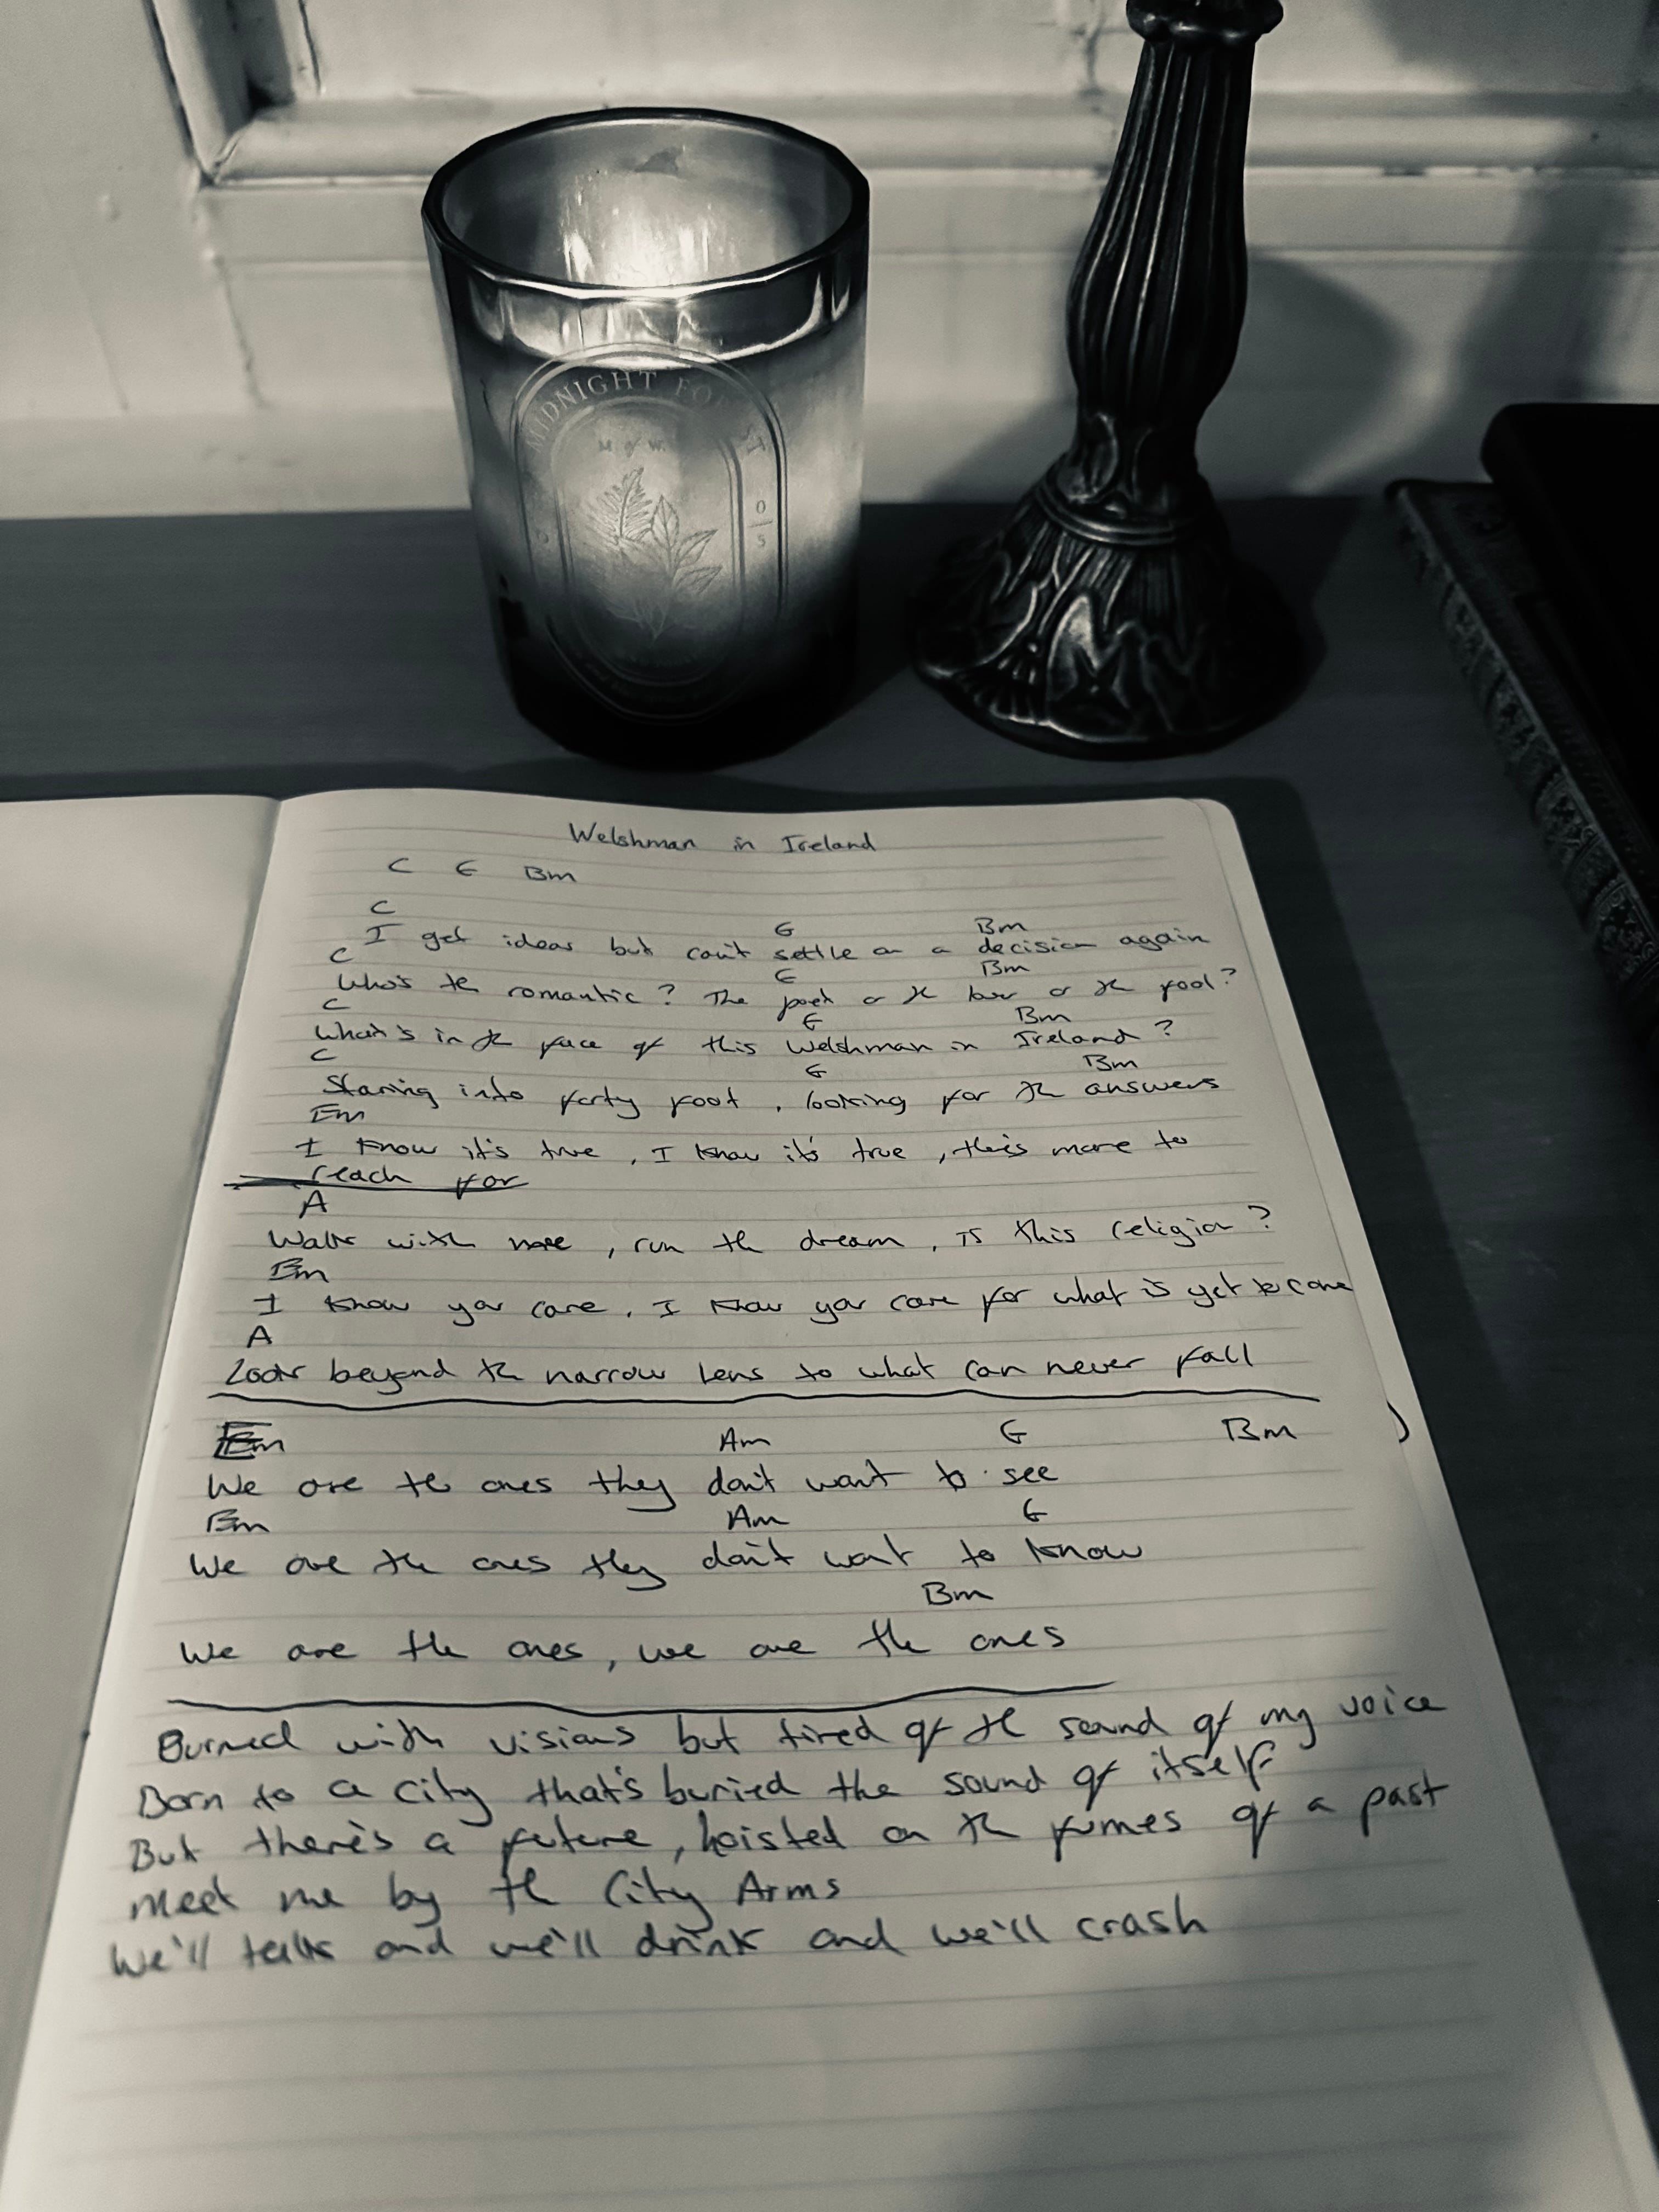 MIDNIGHT FOREST
M of W.
0
5
Welshman in Ireland
C G Bm
C G Bm
I get ideas but can't settle on a decision again
C G Bm
Who's the romantic? The poet or the lover or the fool?
C G Bm
What's in the face of this Welshman in Ireland?
C G Bm
Staring into forty foot, looking for the answers
Em
I know it's true, I know it's true, there's more to
reach for
A
Walk with me, run the dream, is this religion?
Em
I know you care, I know you care for what is yet to come
A
Look beyond the narrow lens to what can never fall
Em Am G Bm
We are the ones they don't want to see
Em Am G
We are the ones they don't want to know
Bm
We are the ones, we are the ones
Burned with visions but tired of the sound of my voice
Born to a city that's buried the sound of itself
But there's a future, hoisted on the fumes of a past
Meet me by the City Arms
We'll talk and we'll drink and we'll crash